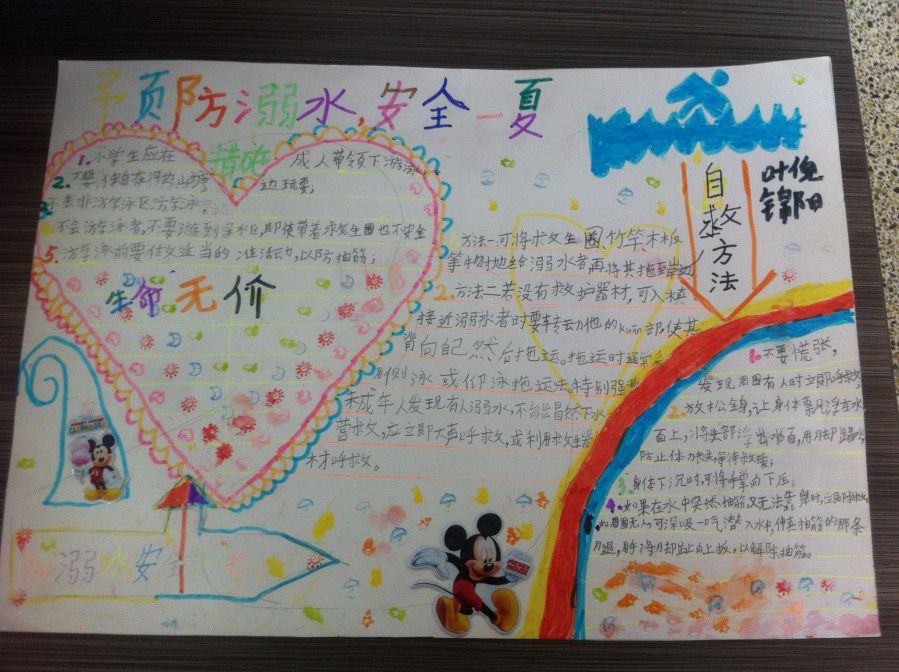 予页防溺水,安全一夏
措施
1.小学生应在 成人带领下游泳
边玩耍;
2.不要独自在河边山塘
不去非游泳区游泳,
不会游泳者,不要游到深水区,即使带着救生圈也不安全
5.游泳前要做适当的准活动,以防抽筋;
生命无价
自救方法
叶倪
锦阳
方法一可将求救生圈竹竿木板
等物抛给溺水者,再将其拖至岸边
2.方法二若没有救护器材,可入水
接近溺水者时要转动他的kuān部使其
背向自己然后拖运。拖运时通常采
用侧泳或仰泳拖运法特别强调
未成年人发现有人溺水,不能冒然下水
营求救,应立即大声呼救,或利用救生器
材呼救。
1.不要慌张,
发现周围有人时立即呼救
2.放松全身,让身体飘浮在水
面上,将头部浮出水面,用脚踢水
防止体力丧失等待救援;
3.身体下沉时,可将手掌向下压;
4.如果在水中突然抽筋又无法靠岸时,立即求救
如周围无人可深吸一口气潜入水中,伸直抽筋的那条
腿,将脚趾向上扳,以解除抽筋。
溺水安全